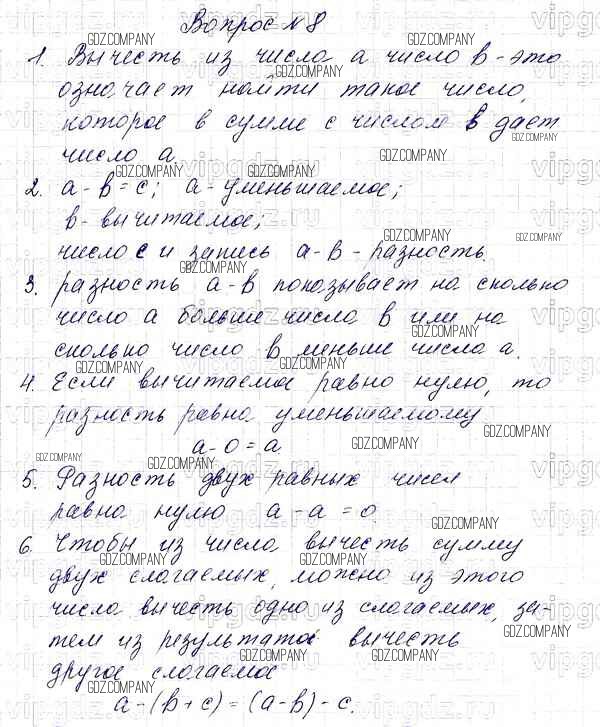 Вопрос №8
1. Вычесть из числа а число в - это
означает найти такое число,
которое в сумме с числом в дает
число а.
2. а - в = с; а - уменьшаемое;
в - вычитаемое;
число с и запись а - в - разность.
3. разность а - в показывает на сколько
число а больше числа в или на
сколько число в меньше числа а.
4. Если вычитаемое равно нулю, то
разность равна уменьшаемому
а - 0 = а
5. Разность двух равных чисел
равна нулю а - а = 0.
6. Чтобы из числа вычесть сумму
двух слагаемых, можно из этого
числа вычесть одно из слагаемых, за-
тем из результата вычесть
другое слагаемое
а - (в + с) = (а - в) - с.